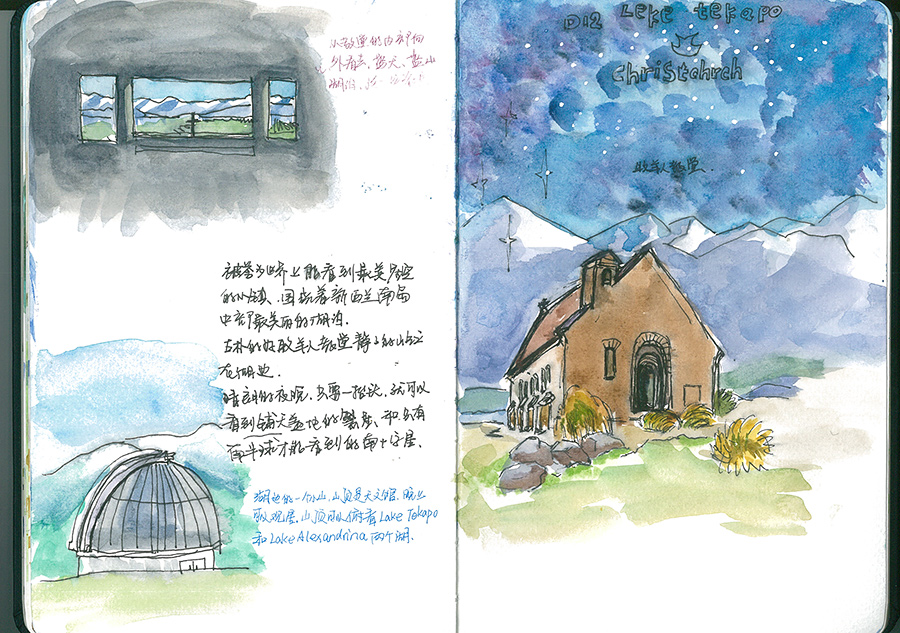 小教堂的内部向
外看去,蓝天,雪山
湖泊,
被誉为世界上能看到最美星空
的小镇,围绕着新西兰南岛
中部最美丽的湖泊.
古朴的好牧羊人教堂静静的屹立
在湖边.
晴朗的夜晚,只要一抬头,就可以
看到铺天盖地的繁星,和只有
南半球才能看到的南十字星.
湖边的一个小山,山顶是天文馆.晚上
可以观星.山顶可以俯看Lake Tekapo
和Lake Alexandrina 两个湖.
D12 Leke tekapo
Christchrch
牧羊人教堂.